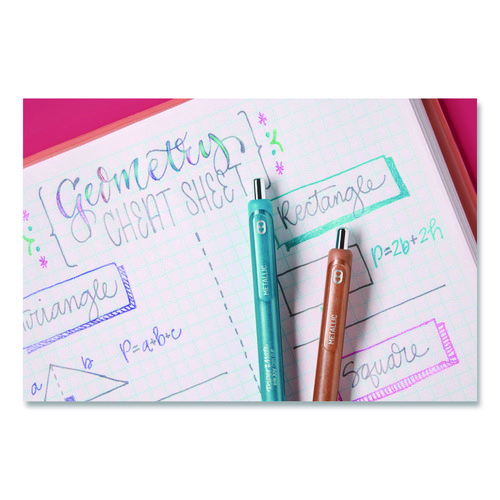 Geometry
CHEAT SHEET
Rectangle
P=2b+2h
Triangle
P=a+b+c
a
b
Square
8
METALLIC
8
METALLIC